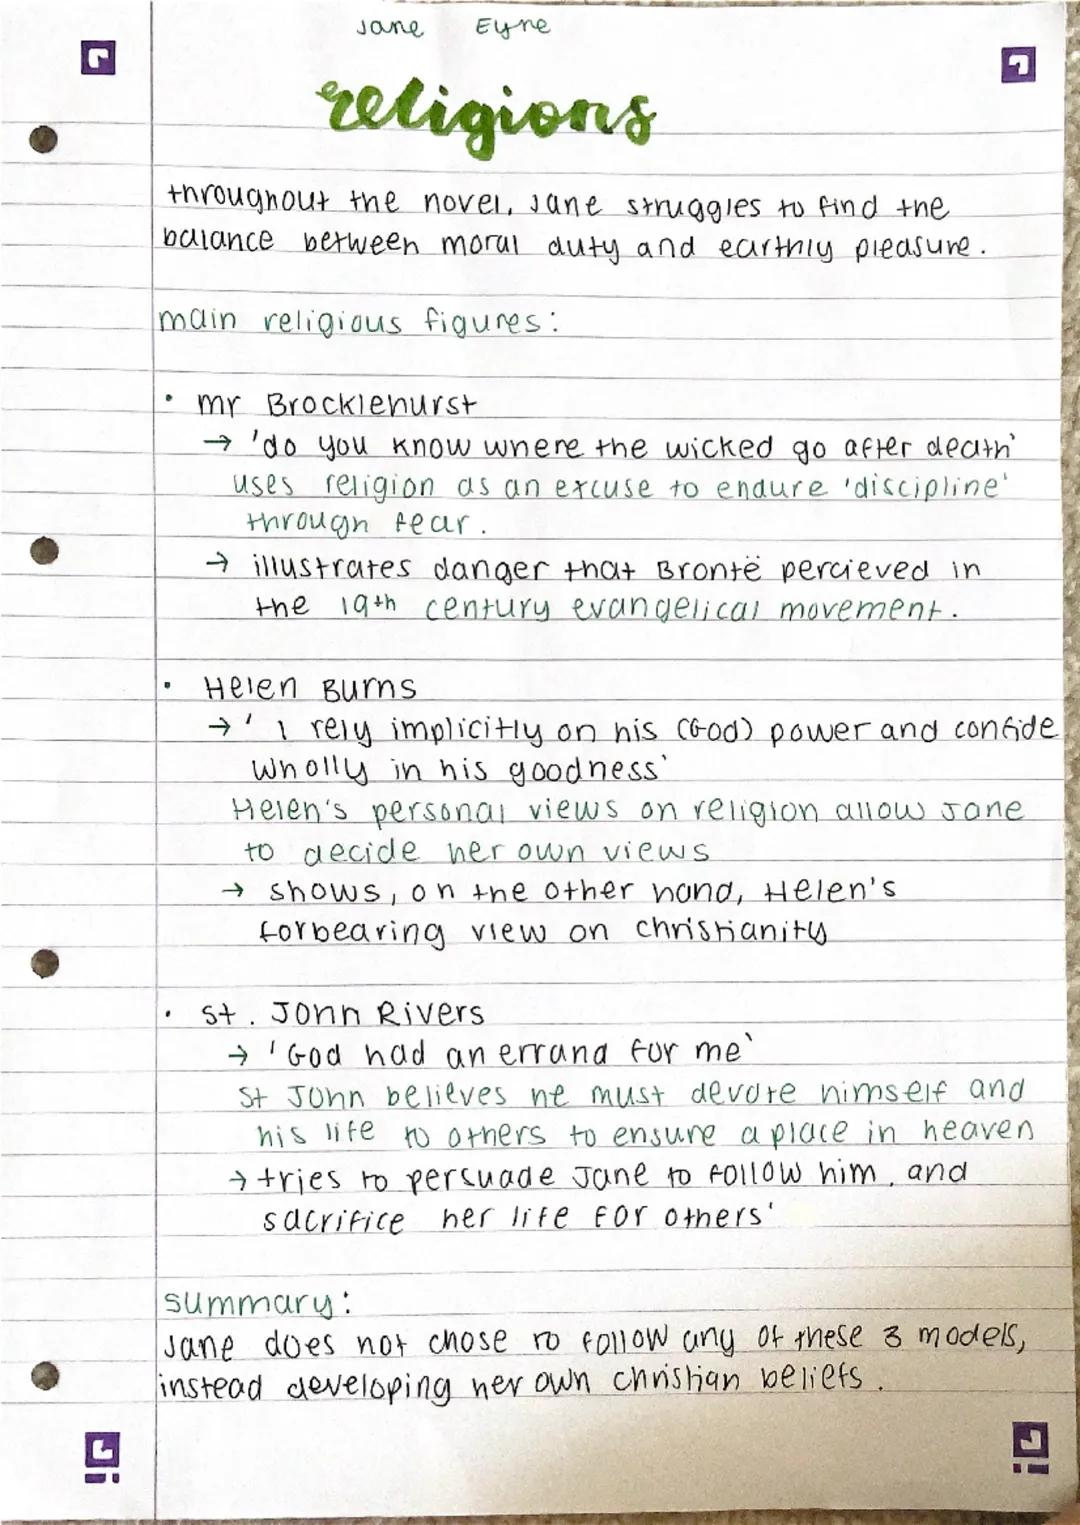 Jane Eyre
religions
throughout the novel, Jane struggles to find the
balance between moral duty and earthly pleasure.
main religious figures:
• mr Brocklehurst
→ 'do you know where the wicked go after death'
uses religion as an excuse to endure 'discipline'
through fear.
→ illustrates danger that Brontë percieved in
the 19th century evangelical movement.
• Helen Burns
→ ' I rely implicitly on his (God) power and confide
wholly in his goodness'
Helen's personal views on religion allow Jane
to decide her own views
→ shows, on the other hand, Helen's
forbearing view on christianity
• St. John Rivers
→ 'God had an errand for me'
St John believes he must devote himself and
his life to others to ensure a place in heaven
→ tries to persuade Jane to follow him, and
sacrifice her life for others'
summary:
Jane does not chose to follow any of these 3 models,
instead developing her own christian beliefs.